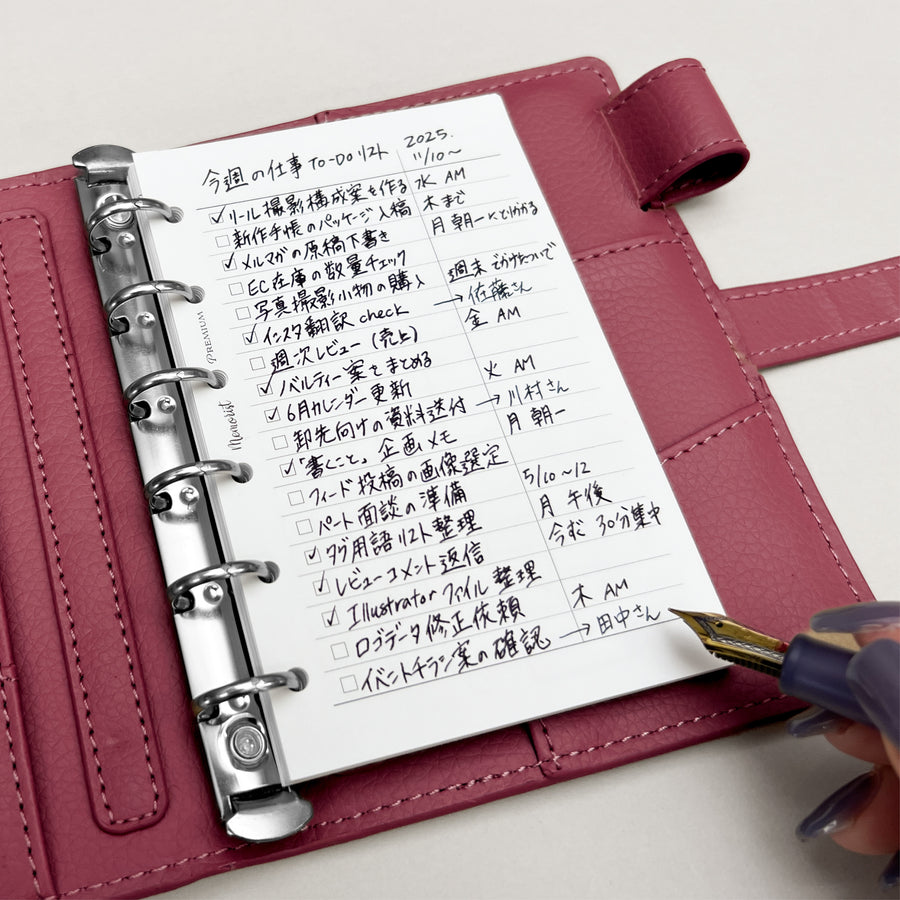 今週の仕事 TO-DO リスト 2025. 11/10〜
リール撮影構成案を作る 水 AM
新作手帳のパッケージ入稿 木まで
メルマガの原稿下書き 月 朝一でとりかかる
EC在庫の数量チェック
写真撮影小物の購入 週末 でかけたついで
インスタ翻訳 check → 佐藤さん
週次レビュー(売上) 金 AM
ノベルティー案をまとめる
6月カレンダー更新 火 AM
卸先向けの資料送付 → 川村さん
「書くこと」企画メモ 月 朝一
フィード投稿の画像選定
パート面談の準備 5/10〜12
タグ用語リスト整理 月 午後
レビューコメント返信 今すぐ 30分集中
Illustratorファイル整理
ロゴデータ修正依頼 木 AM
イベントチラシ案の確認 → 田中さん
Memorist PREMIUM